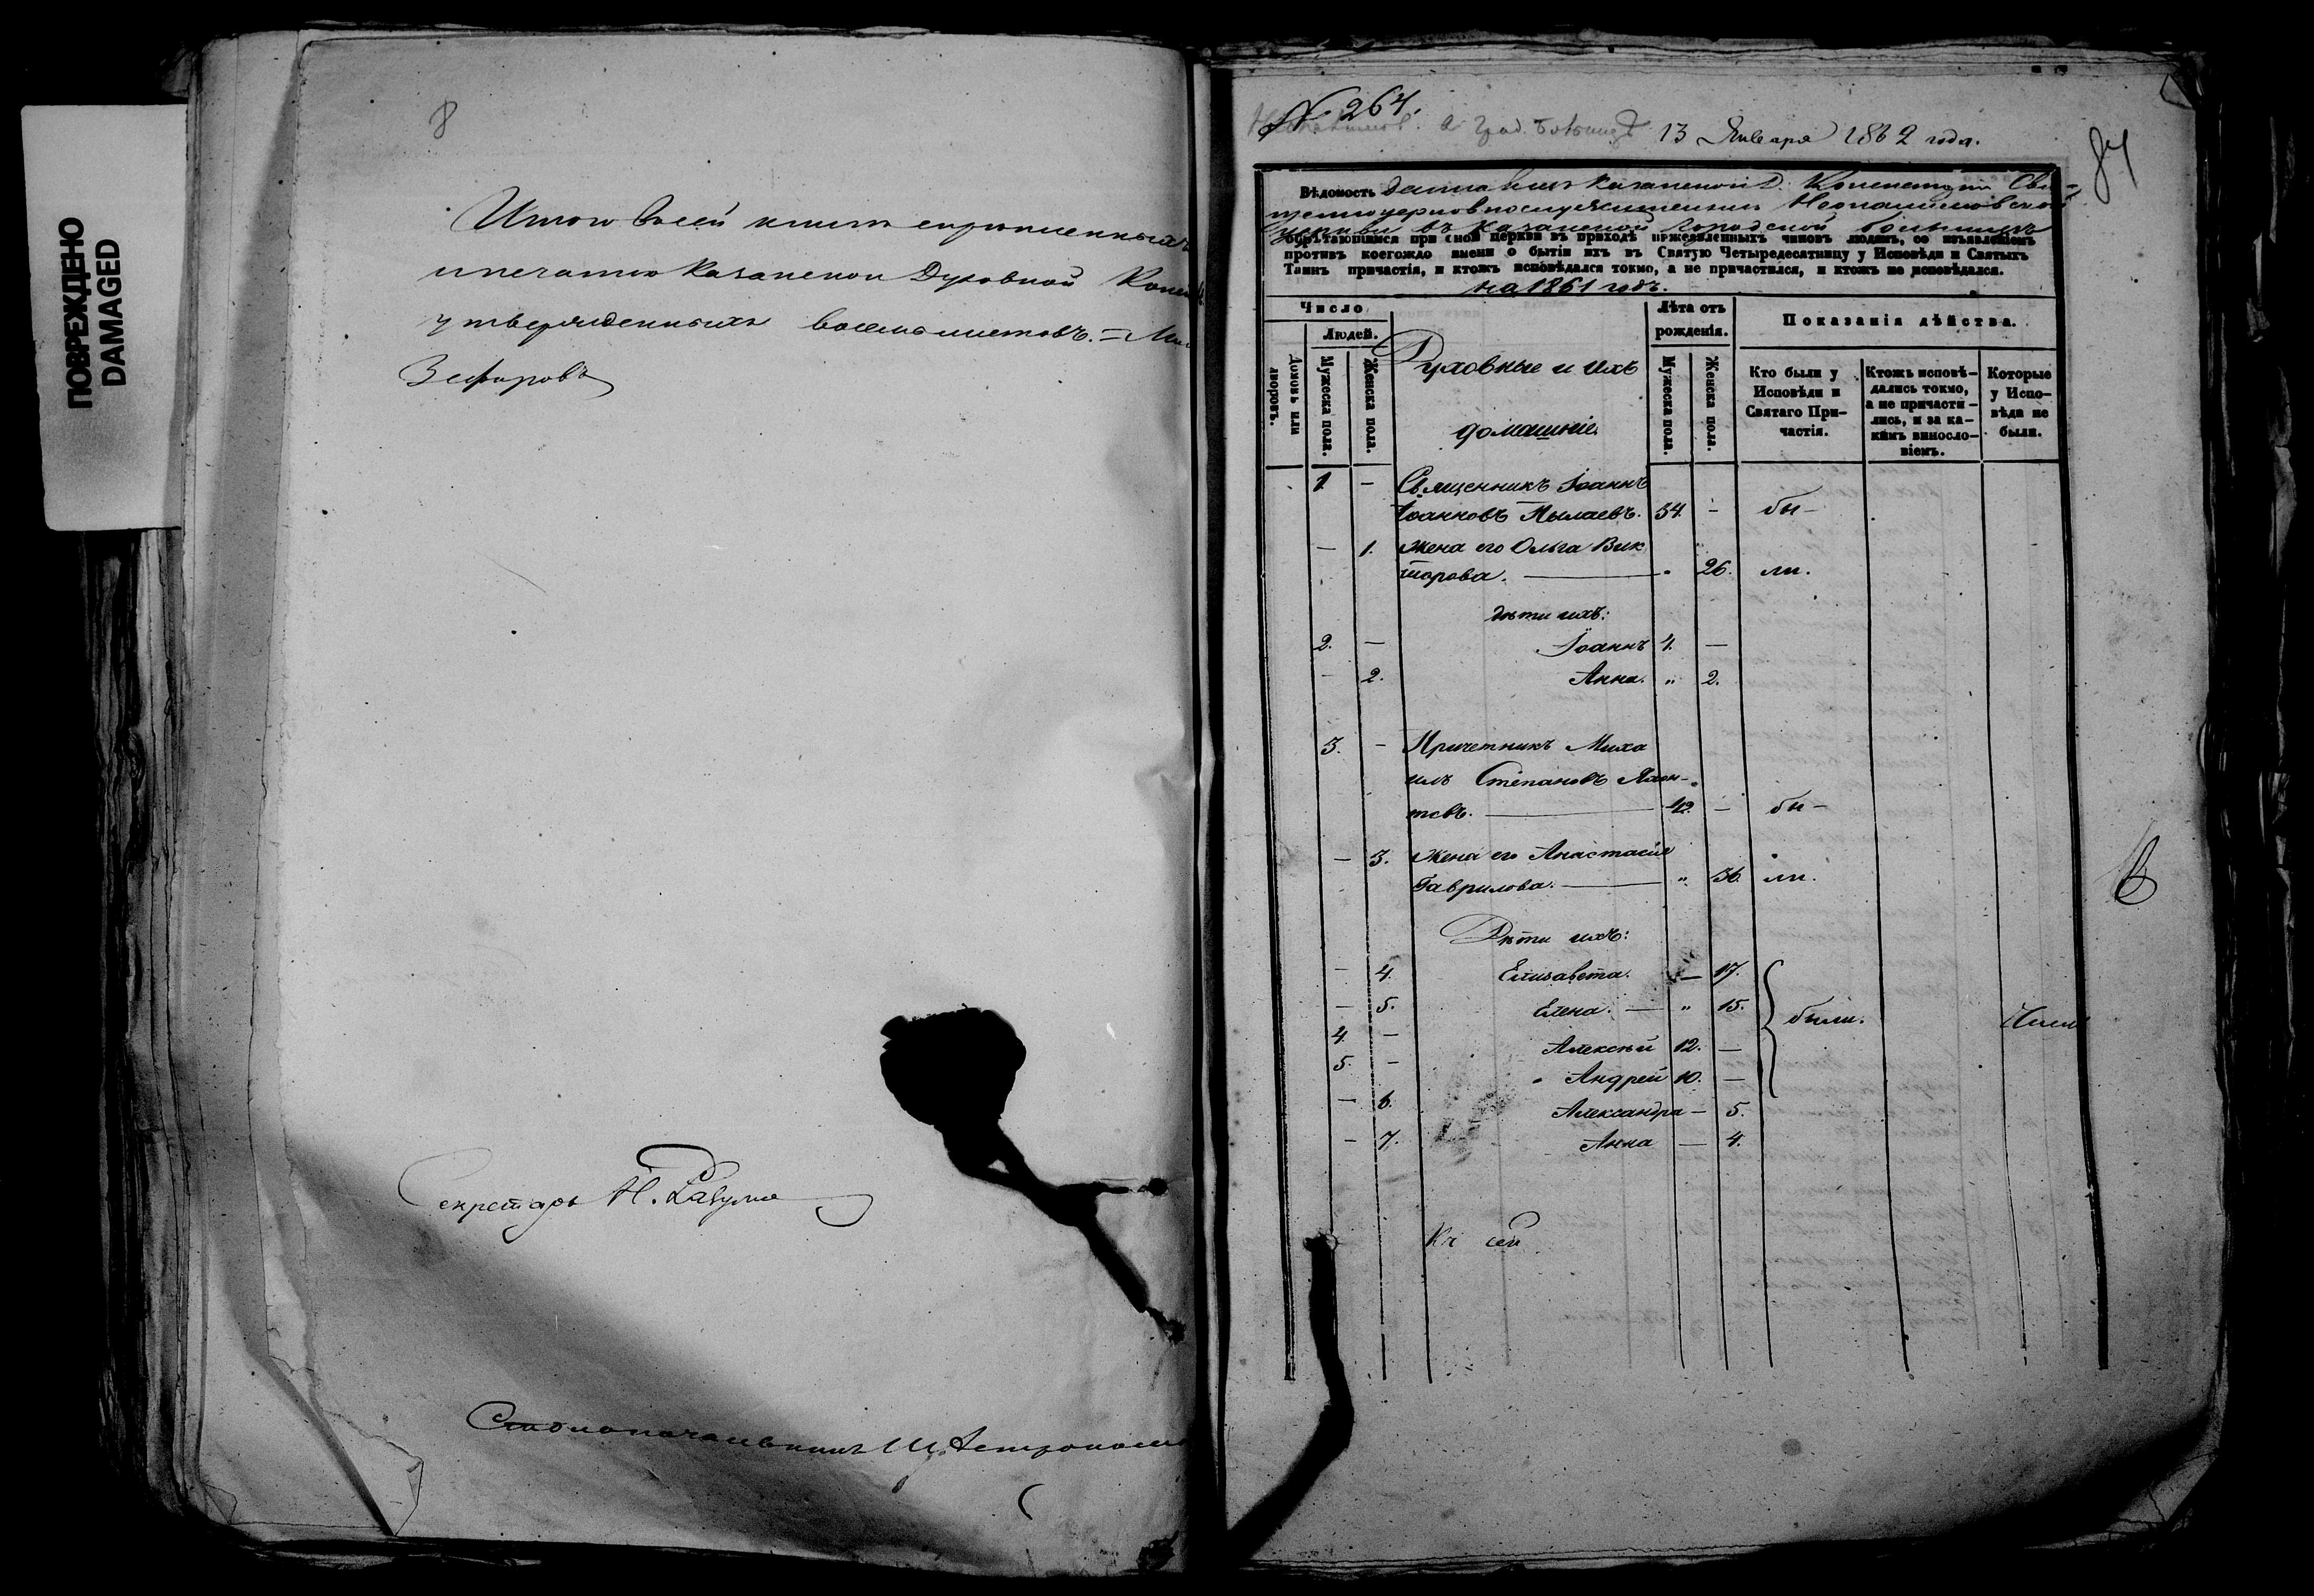 ПОВРЕЖДЕНО
DAMAGED
8
Итого въ сей книгѣ скрѣпленныхъ
и печатью Казанской Духовной Конси
утвержденныхъ восемь листовъ. =
Зефировъ
Секретарь Н. Разумо
Столоначальникъ
№ 264.
13 Января 1862 года.
84
Вѣдомость данная изъ Казанской Д. Консисторіи Свя-
щенноцерковнослужителямъ Неопалимовской
церкви въ Казанской городской больницѣ
обрѣтающимся при оной церкви въ приходѣ нижеявленныхъ чиновъ людямъ, со изъявленіемъ
противъ коегождо имени о бытіи ихъ въ Святую Четыредесятницу у Исповѣди и Святыхъ
Таинъ причастія, и ктожъ исповѣдался токмо, а не причастился, и ктожъ не исповѣдался.
на 1861 годъ.
Число
Людей.
Домовъ или дворовъ.
Мужеска пола.
Женска пола.
Духовные и ихъ
домашніе.
Лѣта отъ
рожденія.
Мужеска пола.
Женска пола.
Показанія дѣйства.
Кто были у
Исповѣди и
Святаго При-
частія.
Ктожъ исповѣ-
дались токмо,
а не причасти-
лись, и за ка-
кимъ винсло-
віемъ.
Которые
у Испо-
вѣди не
были.
1 — Священникъ Іоаннъ
Іоанновъ Пылаевъ. 34. — бы-
— 1. Жена его Ольга Вик
торова. — " 26. ли.
дѣти ихъ:
2. — Іоаннъ 4. —
— 2. Анна. " 2.
3. — Причетникъ Миха
илъ Степановъ
тевъ. — 42. — бы-
— 3. Жена его Анастасія
Гаврилова. — " 36. ли.
Дѣти ихъ:
— 4. Елисавета. — 17.
— 5. Елена. — " 15.
были.
4. — Алексѣй 12. —
5. — Андрей 10. —
— 6. Александра — 5.
— 7. Анна — 4.
Къ сей